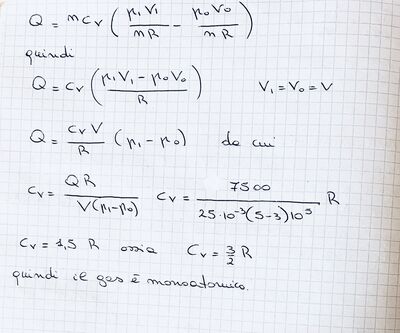 Q = n c_v ( p₁V₁ / nR − p₀V₀ / nR )
quindi
Q = c_v ( p₁V₁ − p₀V₀ / R ) V₁ = V₀ = V
Q = c_v V / R (p₁ − p₀) da cui
c_v = QR / V(p₁−p₀) c_v = 7500 / 25·10⁻³(5−3)10⁵ R
c_v = 1,5 R ossia c_v = 3/2 R
quindi il gas è monoatomico.